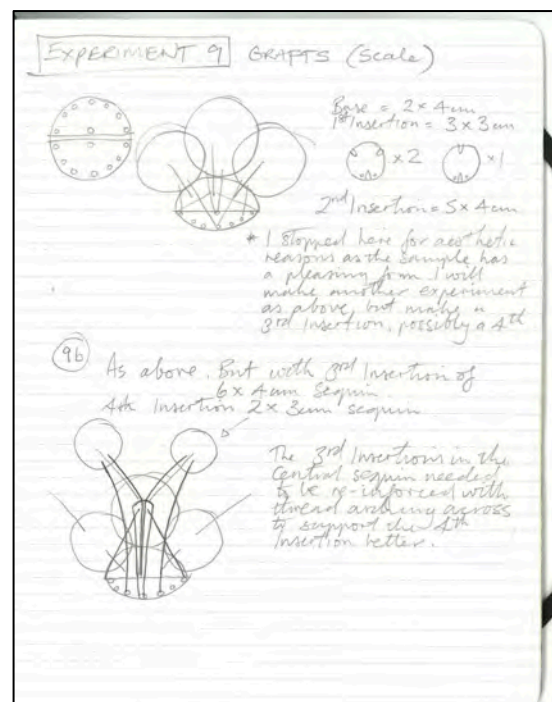 EXPERIMENT 9 GRAFTS (Scale)
Base = 2 x 4cm
1st Insertion = 3 x 3cm
x 2
x 1
2nd Insertion = 5 x 4cm
* I stopped here for aesthetic
reasons as the sample has
a pleasing form I will
make another experiment
as above, but make a
3rd Insertion, possibly a 4th
9b
As above. But with 3rd Insertion of
6 x 4cm Sequin.
4th Insertion 2 x 3cm sequin
The 3rd Insertions in the
Central sequin needed
to be re-inforced with
thread arching across
to support the 4th
Insertion better.